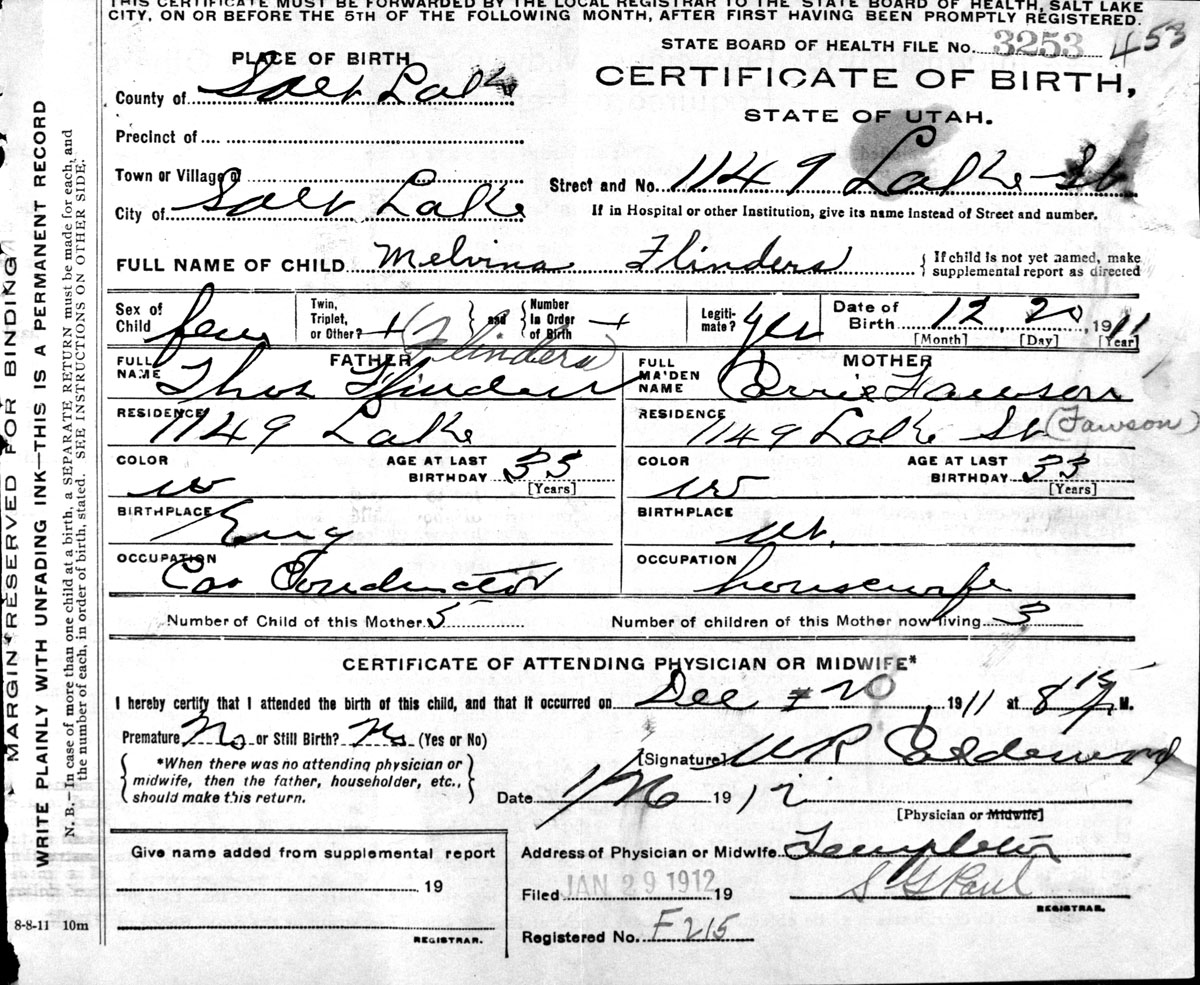 THIS CERTIFICATE MUST BE FORWARDED BY THE LOCAL REGISTRAR TO THE STATE BOARD OF HEALTH, SALT LAKE
CITY, ON OR BEFORE THE 5TH OF THE FOLLOWING MONTH, AFTER FIRST HAVING BEEN PROMPTLY REGISTERED.
STATE BOARD OF HEALTH FILE No. 3253 453
PLACE OF BIRTH
CERTIFICATE OF BIRTH,
STATE OF UTAH.
County of Salt Lake
Precinct of
Town or Village of
Street and No. 1149 Lake St
City of Salt Lake
If in Hospital or other Institution, give its name instead of Street and number.
FULL NAME OF CHILD Melvina Flinders { If child is not yet named, make supplemental report as directed
Sex of Child fem
Twin, Triplet, or Other? + } and { Number in Order of Birth +
Legiti-mate? yes
Date of Birth 12 20, 1911
[Month] [Day] [Year]
(Flinders)
FATHER
FULL NAME Thos Flinders
MOTHER
FULL MAIDEN NAME Carrie Fawson
RESIDENCE 1149 Lake
RESIDENCE 1149 Lake St (Fawson)
COLOR w AGE AT LAST BIRTHDAY 35 [Years]
COLOR w AGE AT LAST BIRTHDAY 33 [Years]
BIRTHPLACE Eng
BIRTHPLACE Ut.
OCCUPATION Car Conductor
OCCUPATION housewife
Number of Child of this Mother 5 Number of children of this Mother now living 3
CERTIFICATE OF ATTENDING PHYSICIAN OR MIDWIFE*
I hereby certify that I attended the birth of this child, and that it occurred on Dec 20, 1911 at 8 15 P. M.
Premature No or Still Birth? No (Yes or No)
{ *When there was no attending physician or midwife, then the father, householder, etc., should make this return. }
[Signature] W R Calderwood
Date 1/26 1912
[Physician or Midwife]
Give name added from supplemental report
19
REGISTRAR.
Address of Physician or Midwife Templeton
Filed JAN 29 1912 19
S G Paul
REGISTRAR.
Registered No. F215
8-8-11 10m
MARGIN RESERVED FOR BINDING
WRITE PLAINLY WITH UNFADING INK—THIS IS A PERMANENT RECORD
N. B.—In case of more than one child at a birth, a SEPARATE RETURN must be made for each, and
the number of each, in order of birth, stated. SEE INSTRUCTIONS ON OTHER SIDE.